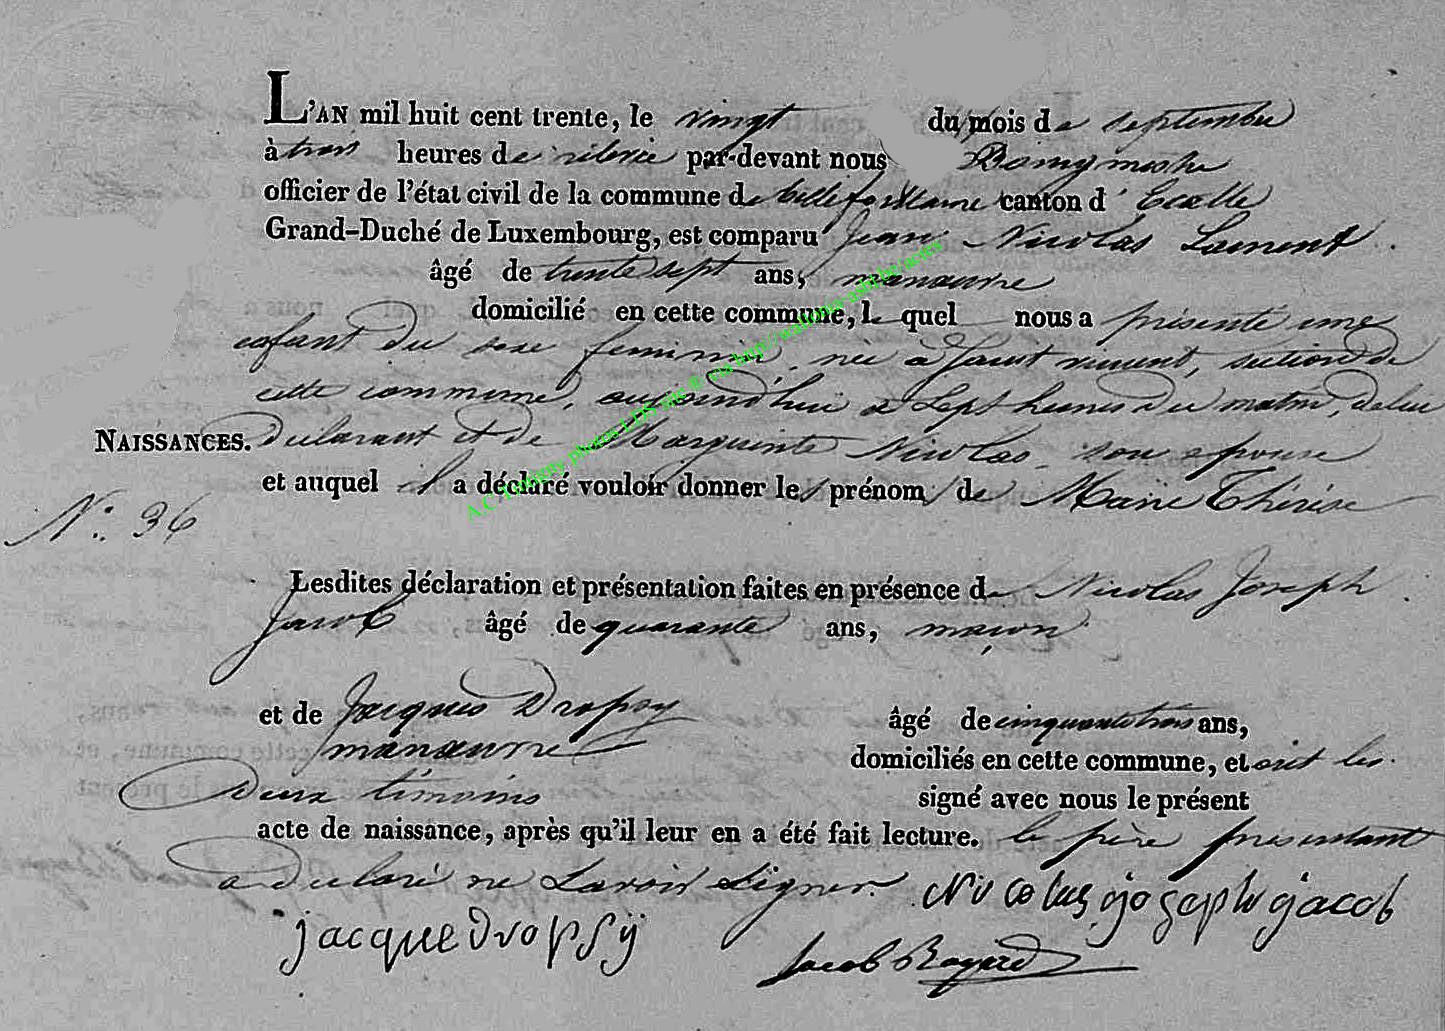 L'AN mil huit cent trente, le vingt du mois de septembre
à trois heures de relevée par-devant nous Bourgmestre
officier de l'état civil de la commune de Bellefontaine canton d' Etalle
Grand-Duché de Luxembourg, est comparu Jean Nicolas Laurent
âgé de trente sept ans, manœuvre
domicilié en cette commune, le quel nous a présenté une
enfant du sexe feminin, née à Saint vincent, section de
cette commune, aujourd'hui a sept heures du matin de lui
NAISSANCES. declarant et de Marguerite Nicolas son epouse
et auquel il a déclaré vouloir donner les prénoms de Marie Thérèse
N.° 36
Lesdites déclaration et présentation faites en présence de Nicolas Joseph
Jacob âgé de quarante ans, maçon
et de Jacques Dropsy âgé de cinquante trois ans,
manœuvre domiciliés en cette commune, et ont les
deux témoins signé avec nous le présent
acte de naissance, après qu'il leur en a été fait lecture. le père présentant
a declaré ne savoir signer. Nicolas joseph jacob
jacque dropsÿ
Jacob
A.C. photos LDS via http://